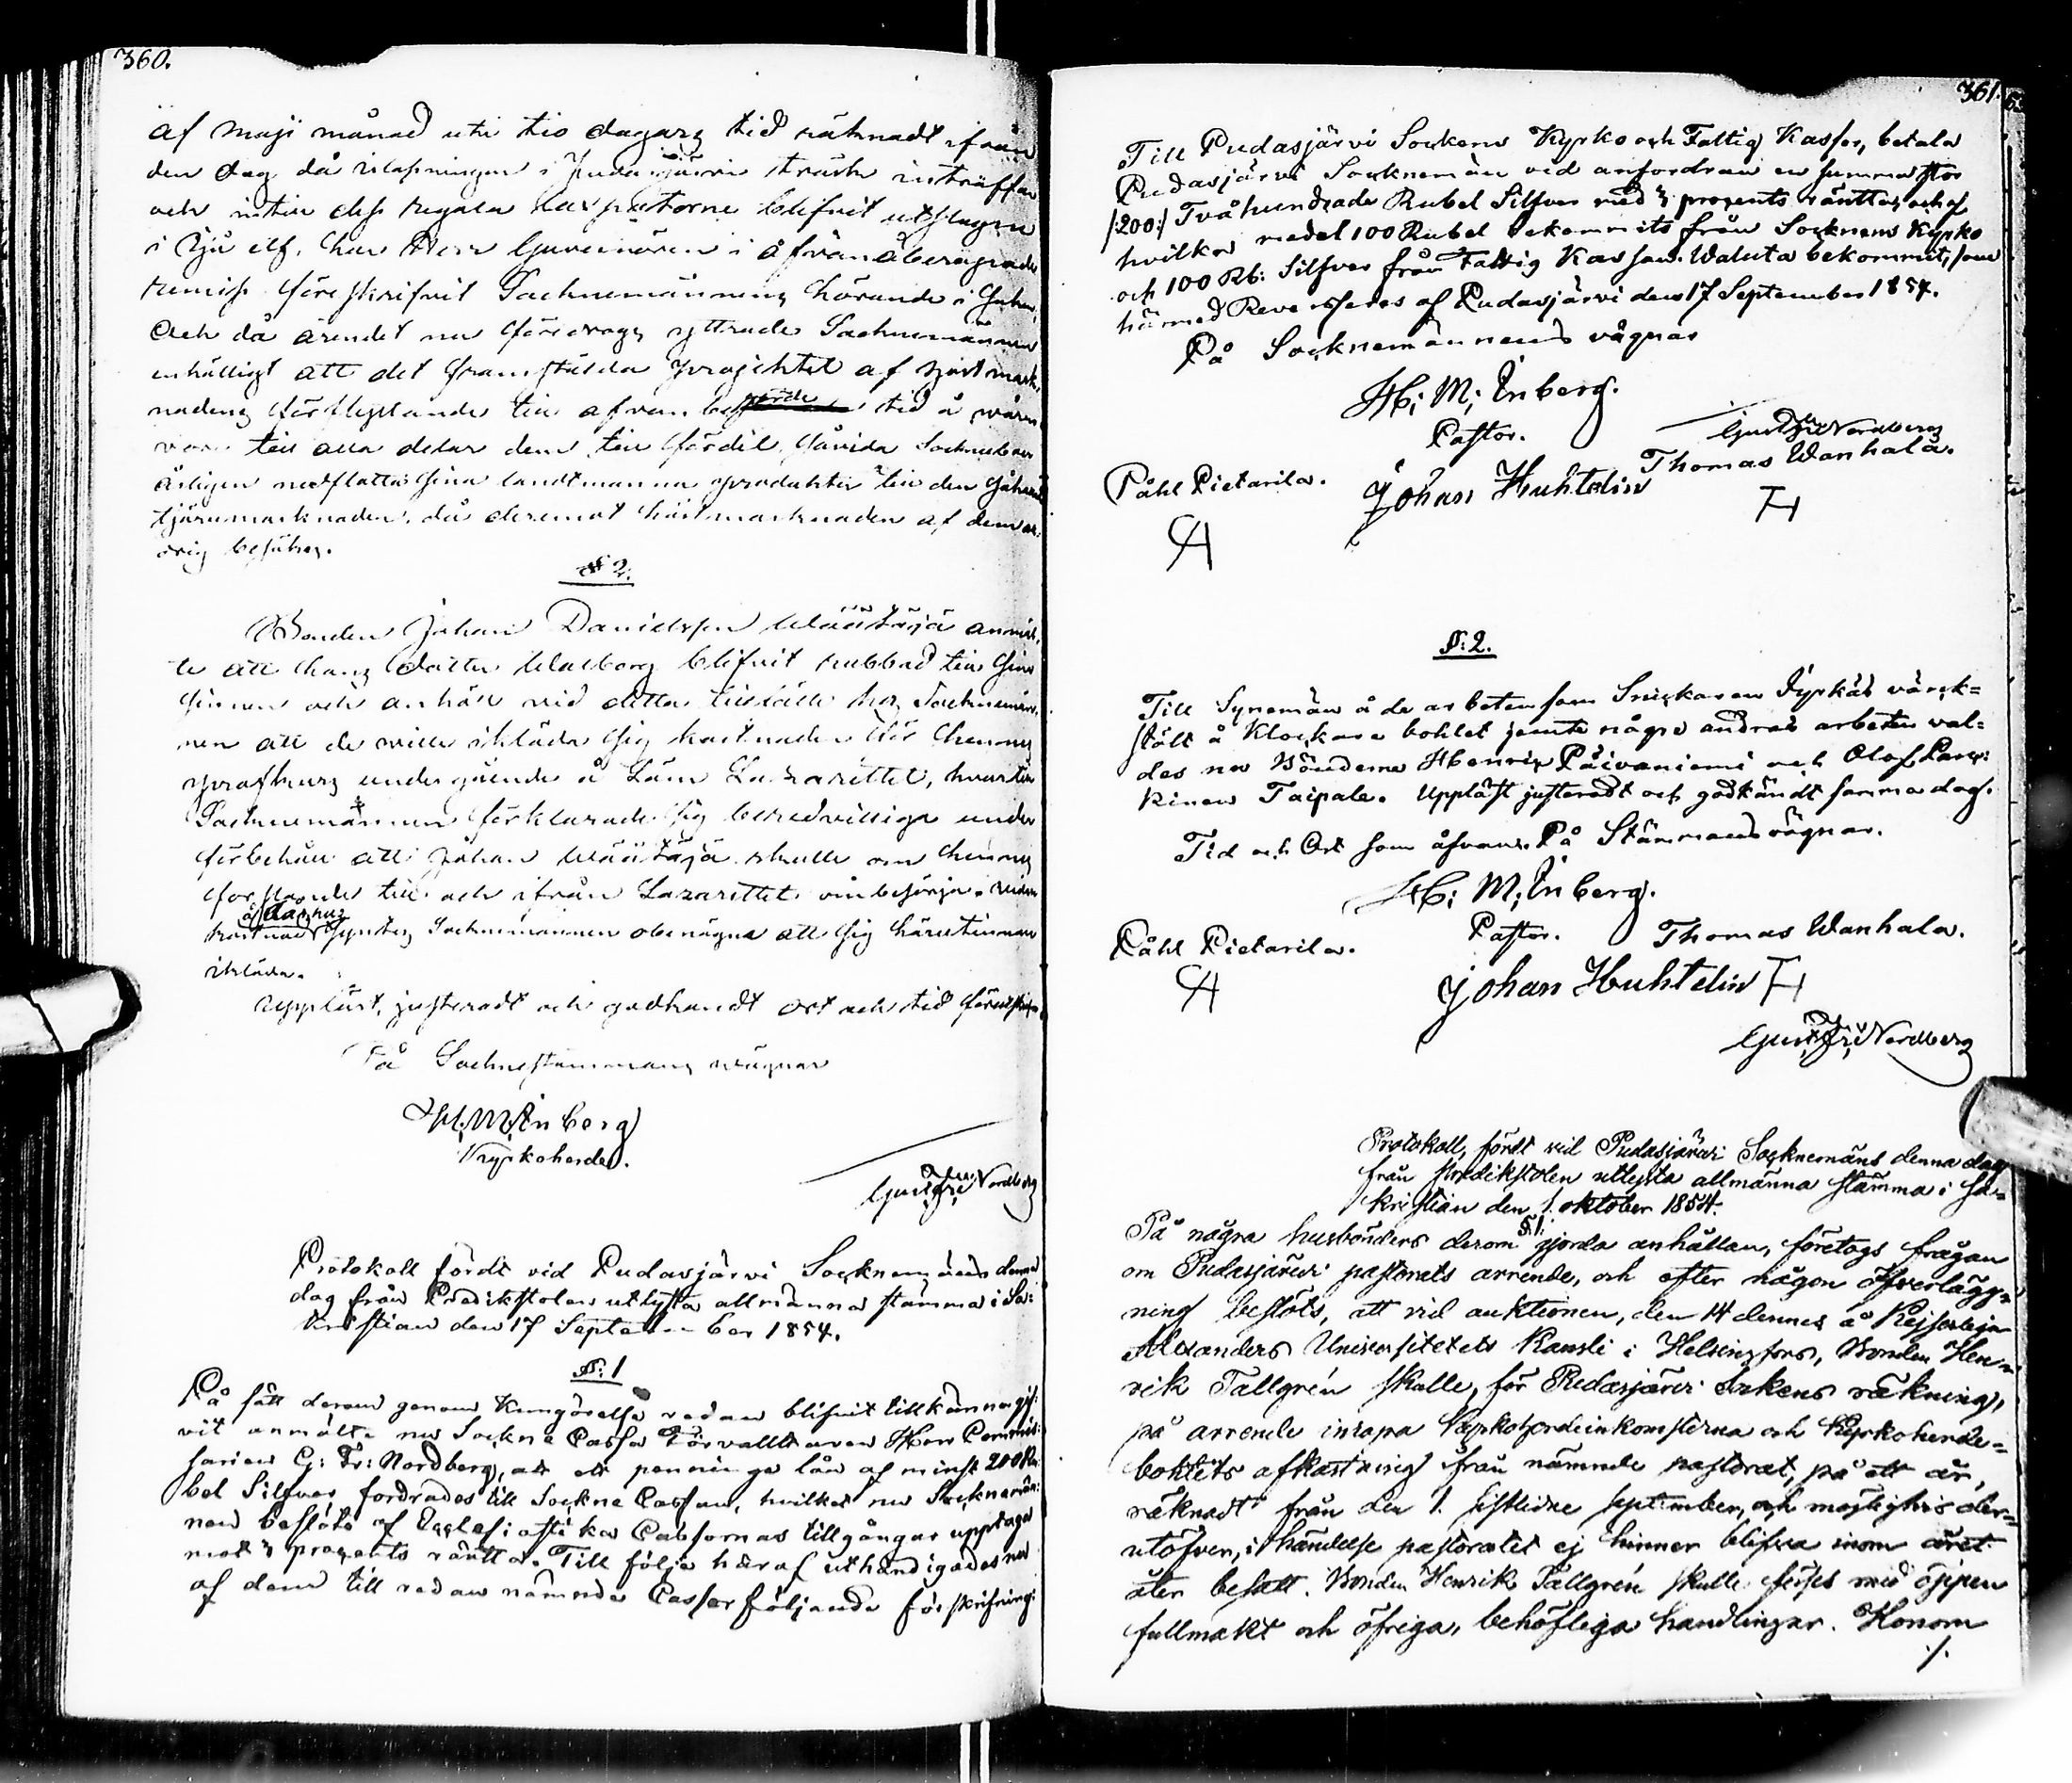 360.
af Maji månad uti tio dagars tid räknadt ifrån
den dag då islossningen i Pudasjärvi träsk inträffar
och intill dess kungsådern blifvit utslagen
i Ijå elf, har Herr Guvernören i åfvanåberopade
remiss föreskrifvit Socknemännens hörande i saken,
Och då ärendet nu föredrogs yttrade Socknemännen
enhälligt att det framstälda projektet af
förflyttande till afvan tid å våren
vore till alla delar dem till fördel såvida Sockneboer
årligen afsätta sina landtmanna produkter till den så kallade
tjärumarknaden, då deremot höstmarknaden af dem
besökes.
§ 2.
Bonden Johan Danielsson Väätäjä anmäl-
te att hans dotter Walborg blifvit rubbad till sina
sinnen och anhöll vid detta tillfälle hos Socknemän-
nen att de ville ikläda sig kostnaden för hennes
undergående å Läns Lazarettet, hvartill
Socknemännen förklarade sig beredvilliga under
förbehåll att Johan Väätäjä skulle om hennes
forslande till och ifrån Lazarettet ombesörja.
kostnad Socknemännen obenägna att sig härutinnan
ikläda.
Uppläst, justeradt och godkändt ort och tid förutskrifne
På Socknestämmans vägnar
H. M. Enberg
Kyrkoherde.
Gust. Fr. Nordberg
Protokoll fördt vid Pudasjärvi Socknemäns denna
dag från Predikstolen utlysta allmänna stämma i Sa-
kristian den 17 September 1854.
§: 1
På sätt derom genom Kungörelse redan blifvit tillkännagif-
vit anmälte nu Sockne Cassa Förvalltaren Herr Commis-
sarien G: Fr: Nordberg, att ett penninge lån af minst 200 Ru-
bel Silfver fordrades till Sockne Cassan, hvilket nu Socknemän-
nen beslöto af Ecclesiastika Cassornas tillgångar upptaga
mot procents räntta. Till följe häraf uthändigades nu
af dem till redan nämnda Cassor följande förskrifning:
361.
Till Pudasjärvi Sockens Kyrko och Fattig Kassor, betala
Pudasjärvi Socknemän vid anfordran en summa stor
/:200:/ Tvåhundrade Rubel Silfver med procents ränttor, och af
hvilka medel 100 Rubel bekommits från Socknens Kyrko
och 100 Rb: Silfver från Fattig Kassan. Waluta bekommit, som
härmed Reverseras af Pudasjärvi den 17 September 1854.
På Socknemännens vägnar
H: M: Enberg.
Pastor.
Gust. Fr. Nordberg
Påhl Pietarila. Johan Huhtelin Thomas Wanhala.
§: 2.
Till Synemän å de arbeten som Snickaren Tyrkäs värck-
stält å Klockare bohlet jemte någre andras arbeten val-
des nu Bönderne Henric Päivaniemi och Olof
kinen Taipale. Uppläst justeradt och godkändt samma dag.
Tid och Ort som åfvan. På Stämmans vägnar.
H: M: Enberg.
Pastor.
Påhl Pietarila. Thomas Wanhala.
Johan Huhtelin
Gust. Fr. Nordberg
Protokoll, fördt vid Pudasjärvi Socknemäns denna dag
från predikstolen utlysta allmänna stämma i sa-
kristian den 1 oktober 1854.
§ 1.
På några husbönders derom gjorda anhållan, företogs frågan
om Pudasjärvi pastorats arrende, och efter någon öfverlägg-
ning beslöts, att vid auktionen, den 14 dennes å Kejserliga
Alexanders Universitetets Kansli i Helsingfors, Bonden Hen-
rik Tallgrén skulle, för Pudasjärvi Sockens räkning,
på arrende inropa Kyrkoherdeinkomsterna och Kyrkoherde-
bohlets afkastning från nämnde pastorat, på ett år,
räknadt från den 1. sistlidne september, och möjligtvis der-
utöfver, i händelse pastoratet ej hinner blifva inom året
åter besatt. Bonden Henrik Tallgrén skulle förses med öppen
fullmakt och öfriga, behöfliga handlingar. Honom
./.